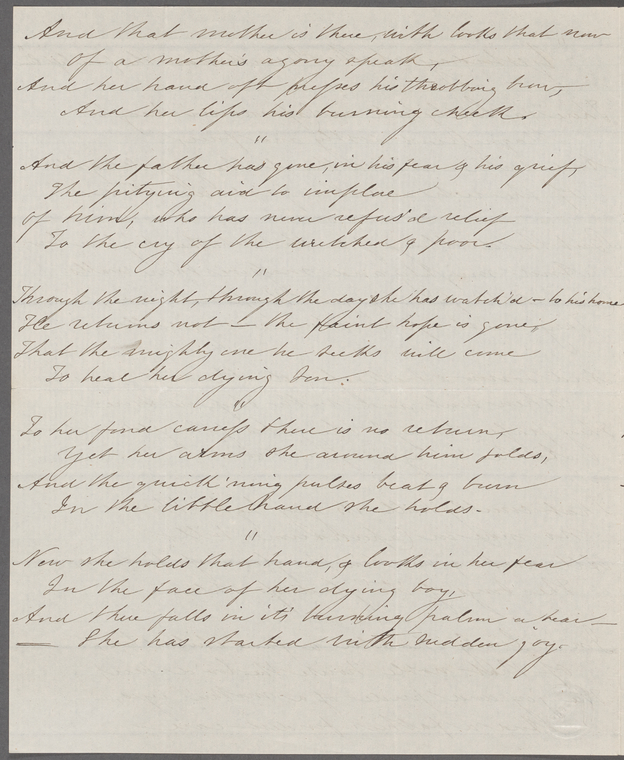 And that mother is there, with looks that now
Of a mother's agony speak,
And her hand oft presses his throbbing brow,
And her lips his burning cheek.
"
And the father has gone, in his fear & his grief,
The pitying aid to implore
Of him, who has never refus'd relief
To the cry of the wretched & poor.
"
Through the night, through the day she has watch'd – to his home
He returns not – the faint hope is gone,
That the mighty one he seeks will come
To heal her dying son.
"
To her fond caress there is no return,
Yet her arms she around him folds,
And the quick'ning pulses beat & burn
In the little hand she holds.
"
Now she holds that hand, & looks in her fear
In the face of her dying boy,
And there falls in it's burning palm a tear –
– She has started with sudden joy.